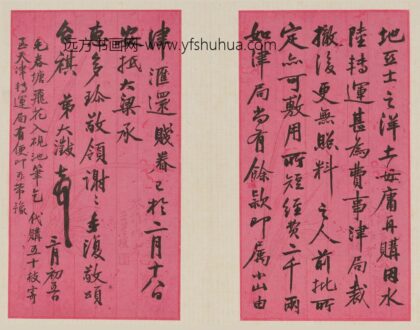 远方书画网 www.yfshuhua.com
地亚士之洋土毋庸再購因水
陸轉運甚為費事津局裁
撤後更無照料之人前批所
定亦可敷用所短經費二千兩
如津局尚有餘款即屬小山由
津匯還賤眷已於二月十八日
安抵大梁承
惠多珍敬領謝謝手復敬頌
台祺 弟大澂
二月初
毛春塘飛花入硯池筆乞代購五十枝寄
至天津轉運局有便吖亦弟